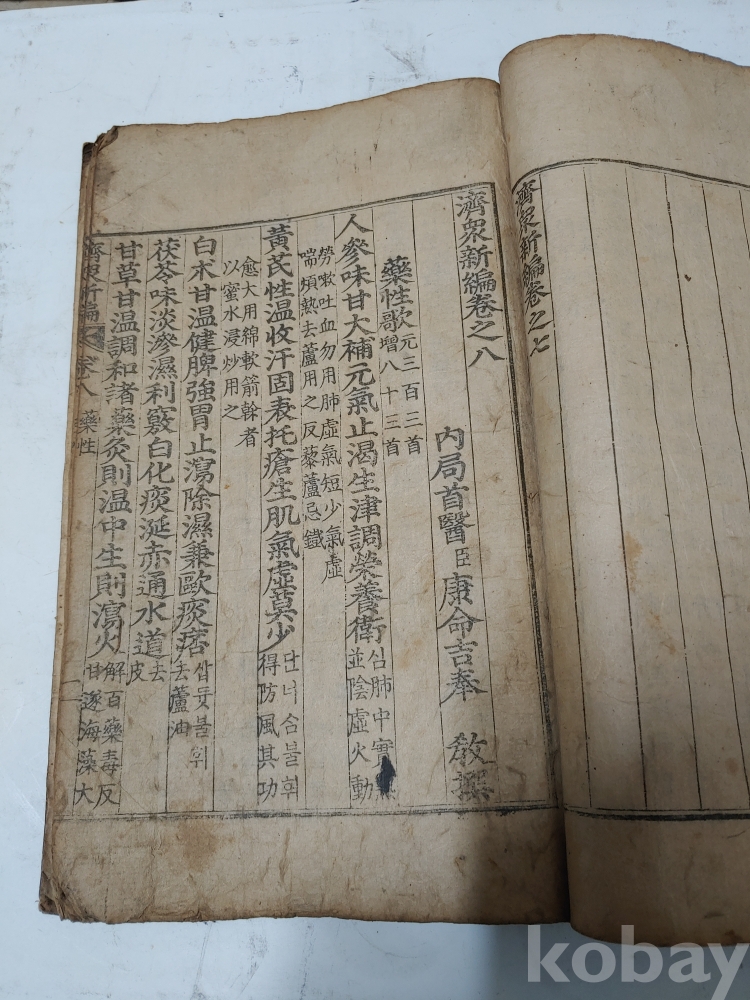 濟衆新編卷之七
濟衆新編卷之八
內局首醫臣康命吉奉 敎撰
藥性歌元三百三首
增八十三首
人參味甘大補元氣止渴生津調榮養衛심肺中實
並陰虛火動
勞嗽吐血勿用肺虛氣短少氣虛
喘煩熱去蘆用之反藜蘆忌鐵
黃芪性溫收汗固表托瘡生肌氣虛莫少단너삼불휘
得防風其功
愈大用綿軟箭幹者
以蜜水浸炒用之
白朮甘溫健脾強胃止瀉除濕兼敺痰痞삽듓불휘
去蘆油
茯苓味淡滲濕利竅白化痰涎赤通水道去
皮
甘草甘溫調和諸藥灸則溫中生則瀉火解百藥毒反
甘遂海藻大
濟衆新編 卷八 藥性
kobay